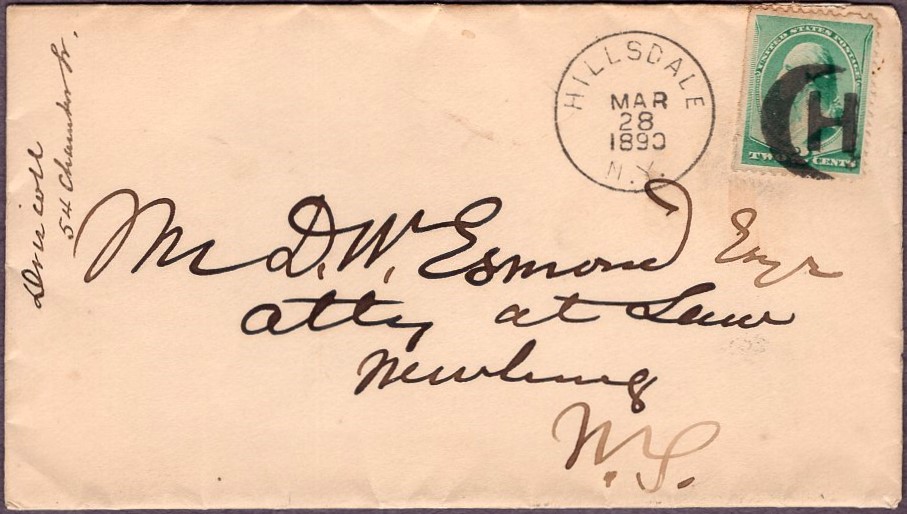 Driscoll
54 Chambers St.
HILLSDALE
MAR
28
1890
N.Y.
UNITED STATES POSTAGE
TWO CENTS
H
Mr D. W. Esmond Esqr
Atty at Law
Newburg
N.Y.